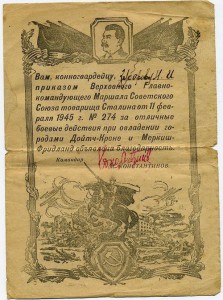 Вам, конногвардейцу,
приказом Верховного Главно-
командующего Маршала Советского
Союза товарища Сталина от 11 фев-
раля 1945 г. № 274 за отличные
боевые действия при овладении го-
родами Дойтч-Кроне и Меркиш-
Фридланд объявлена благодарность.
Командир
КОНСТАНТИНОВ.